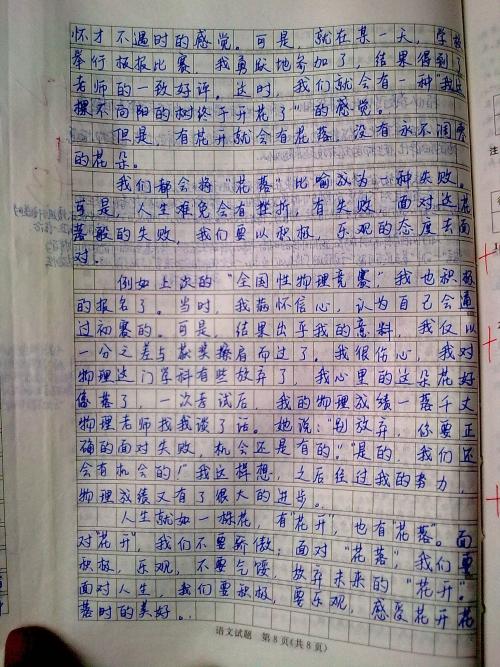 怀才不遇时的感觉。可是，就在某一天，学校
举行板报比赛，我勇敢地参加了，结果得到了
老师的一致好评。这时，我们就会有一种“我这
棵不向阳的树终于开花了”的感觉。
但是，有花开就会有花落，没有永不凋零
的花朵。
我们都会将“花落”比喻成为一种失败。
可是，人生难免会有挫折，有失败，面对这花
落般的失败，我们要以积极，乐观的态度去面
对。
例如上次的“全国性物理竞赛”，我也积极
的报名了。当时，我满怀信心，认为自己会通
过初赛的。可是，结果出乎我的意料，我仅以
一分之差与获奖擦肩而过了。我很伤心，我对
物理这门学科有些放弃了，我心里的这朵花好
像落了，一次考试后，我的物理成绩一落千丈
物理老师找我谈了话。她说：“别放弃，你要正
确的面对失败，机会还是有的。”“是的，我们还
会有机会的！”我这样想，之后经过我的努力，
物理成绩又有了很大的进步。
人生就如一棵花，有“花开”，也有“花落”。面
对“花开”，我们不要骄傲，面对“花落”，我们要
积极，乐观，不要气馁，放弃未来的“花开”。
面对人生，我们要积极，要乐观，感受花开花
落时的美好。
语文试题 第8页(共8页)
注